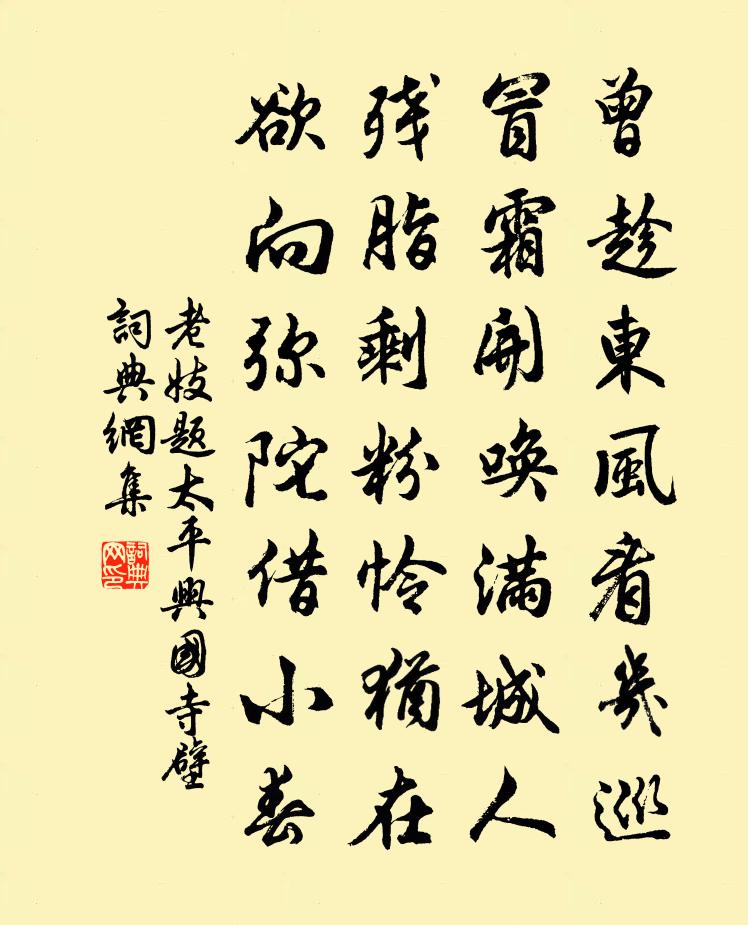 曾趁東風看幾巡
冒霜開喚滿城人
残脂剩粉怜猶在
欲向弥陀借小春
老妓题太平興國寺壁
詞典網集
詞典网印